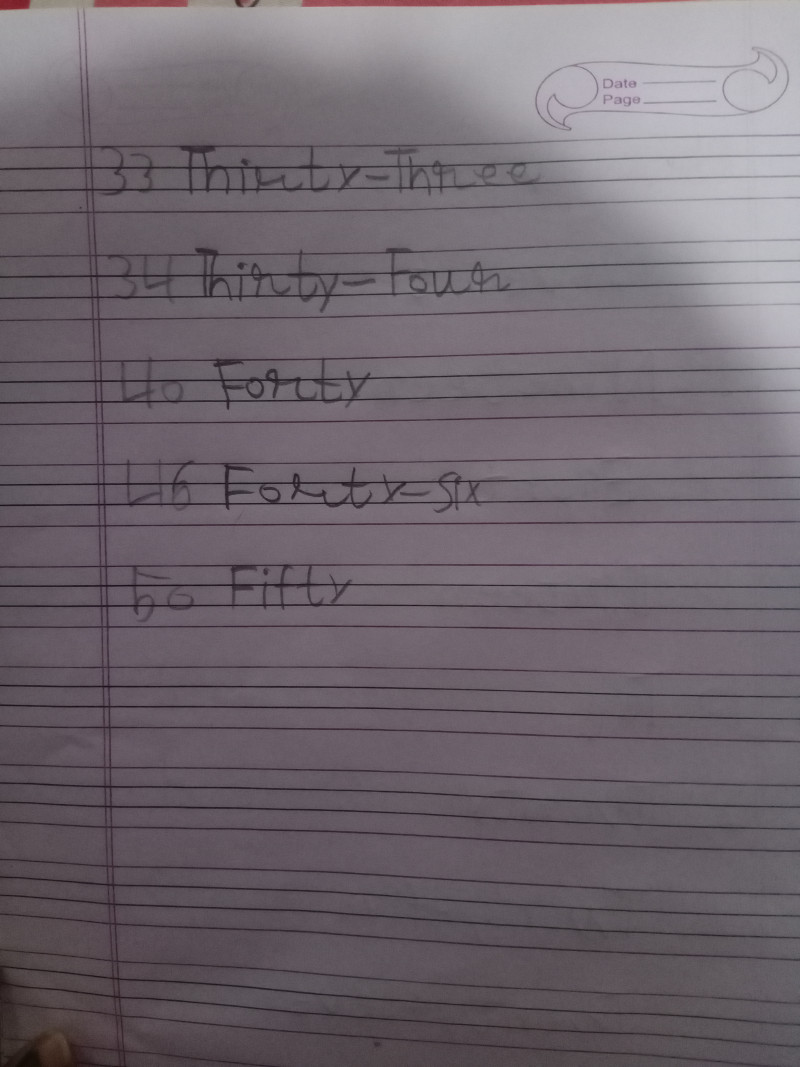 Date
Page
33 Thirty-Three
34 Thirty-Four
40 Forty
46 Forty-six
50 Fifty